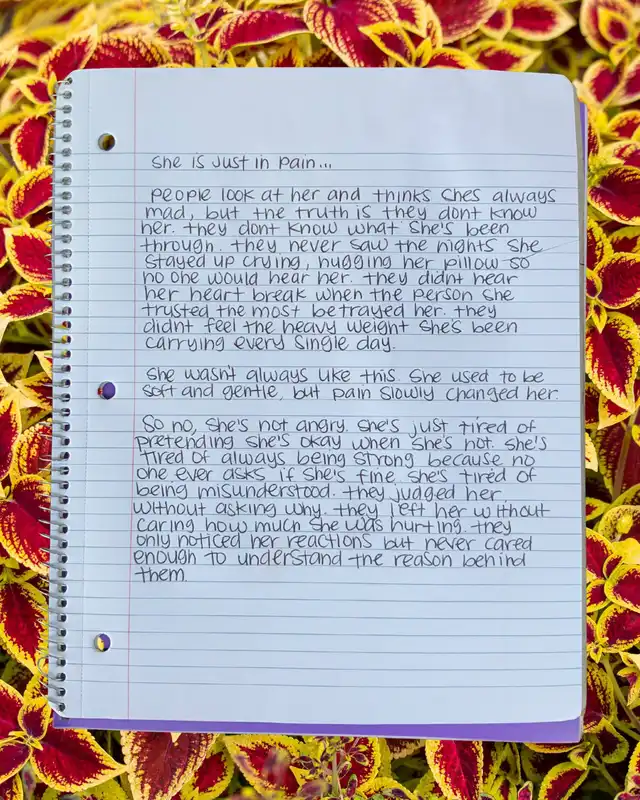 She is just in pain...
people look at her and thinks shes always
mad, but the truth is they dont know
her. they dont know what she's been
through. they never saw the nights she
stayed up crying, hugging her pillow so
no one would hear her. they didnt hear
her heart break when the person she
trusted the most betrayed her. they
didnt feel the heavy weight she's been
carrying every single day.
She wasn't always like this. She used to be
soft and gentle, but pain slowly changed her.
So no, she's not angry. she's just tired of
pretending she's okay when she's not. she's
tired of always being strong because no
one ever asks if she's fine. she's tired of
being misunderstood. they judged her
without asking why. they left her without
caring how much she was hurting. they
only noticed her reactions but never cared
enough to understand the reason behind
them.